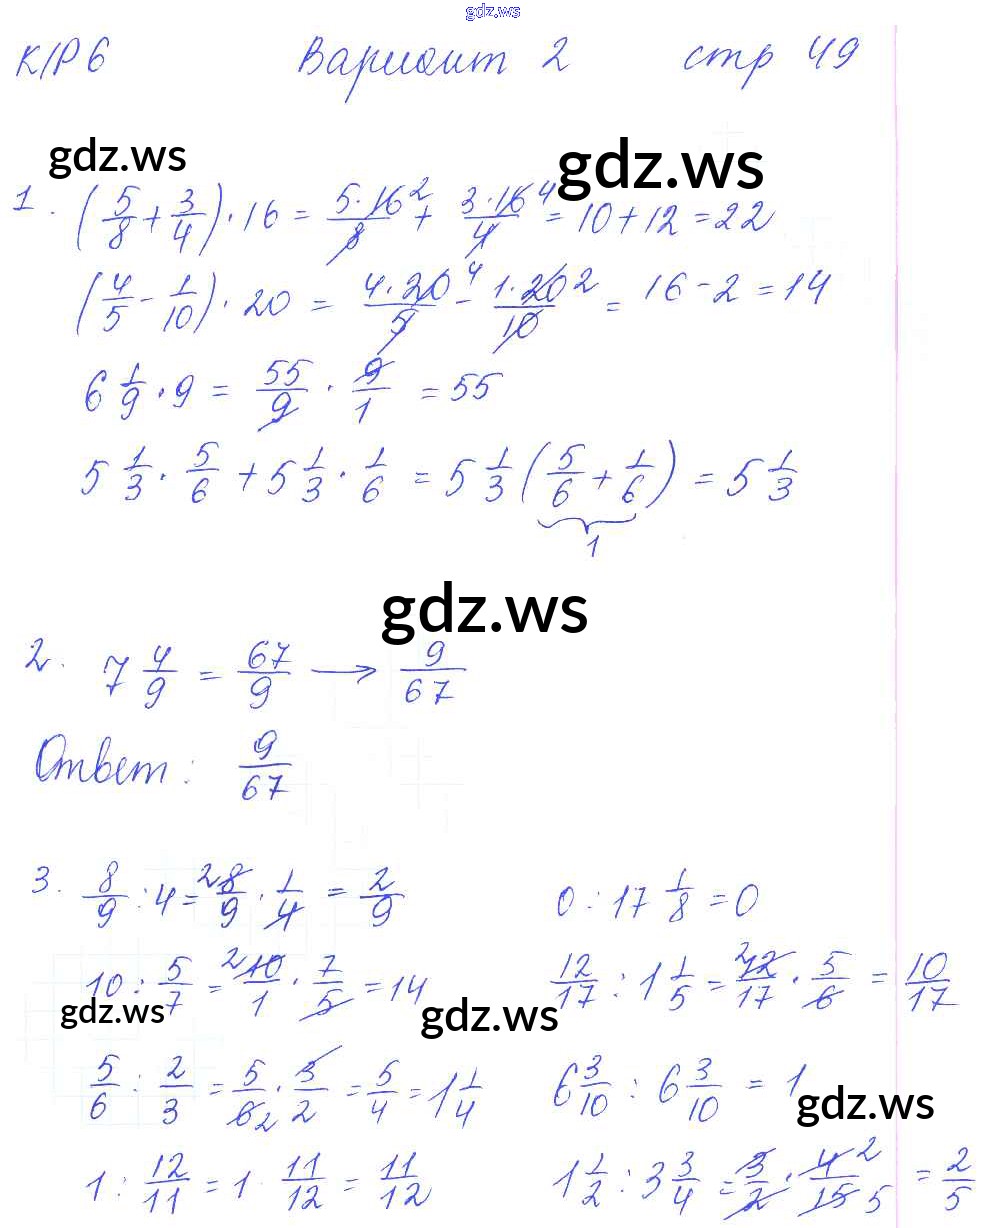 gdz.ws
К/Р 6 Вариант 2 стр 49
gdz.ws gdz.ws
1. (5/8 + 3/4) · 16 = 5·16²/8 + 3·16⁴/4 = 10 + 12 = 22
(4/5 - 1/10) · 20 = 4·20⁴/5 - 1·20²/10 = 16 - 2 = 14
6 1/9 · 9 = 55/9 · 9/1 = 55
5 1/3 · 5/6 + 5 1/3 · 1/6 = 5 1/3 (5/6 + 1/6) = 5 1/3
1
gdz.ws
2. 7 4/9 = 67/9 → 9/67
Ответ: 9/67
3. 8/9 : 4 = ²8/9 · 1/4 = 2/9 0 : 17 1/8 = 0
10 : 5/7 = ²10/1 · 7/5 = 14 12/17 : 1 1/5 = ²12/17 · 5/6 = 10/17
gdz.ws gdz.ws
5/6 : 2/3 = 5/6₂ · 3/2 = 5/4 = 1 1/4 6 3/10 : 6 3/10 = 1
gdz.ws
1 : 12/11 = 1 · 11/12 = 11/12 1 1/2 : 3 3/4 = 3/2 · 4²/15₅ = 2/5